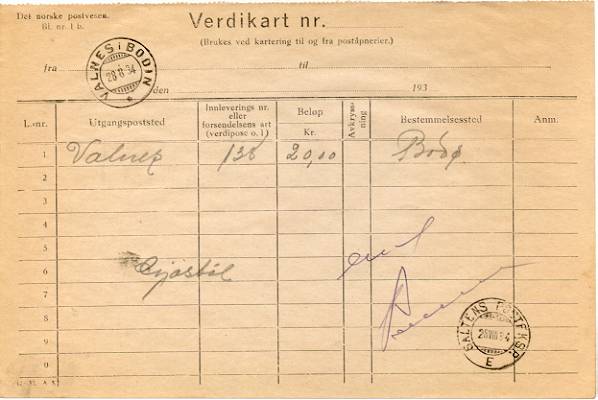 Det norske postvesen.
Bl. nr. 1 b.
Verdikart nr.
(Brukes ved kartering til og fra poståpnerier.)
VALNES I BODIN
28 8 34
fra
til
den
193
L.-nr.
Utgangspoststed
Innleverings nr. eller forsendelsens art (verdipose o. l.)
Beløp
Kr.
Avkryssning
Bestemmelsessted
Anm.
1 Valnes 138 20,00 Bodø
2
3
4
5
6
7
8
9
0
SALTENS POSTEKSP.
E